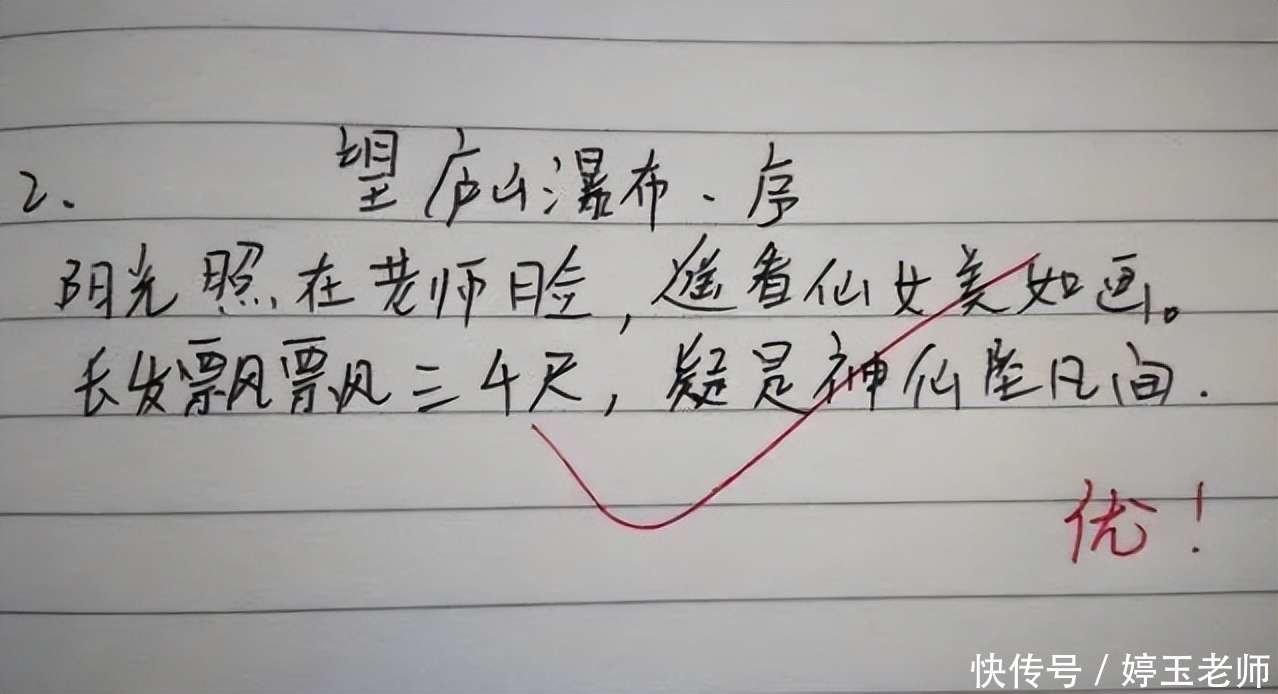 2、 望庐山瀑布、序
阳光照在老师脸，遥看仙女美如画。
长发飘飘三4尺，疑是神仙坠凡间.
优！
快传号 / 婷玉老师